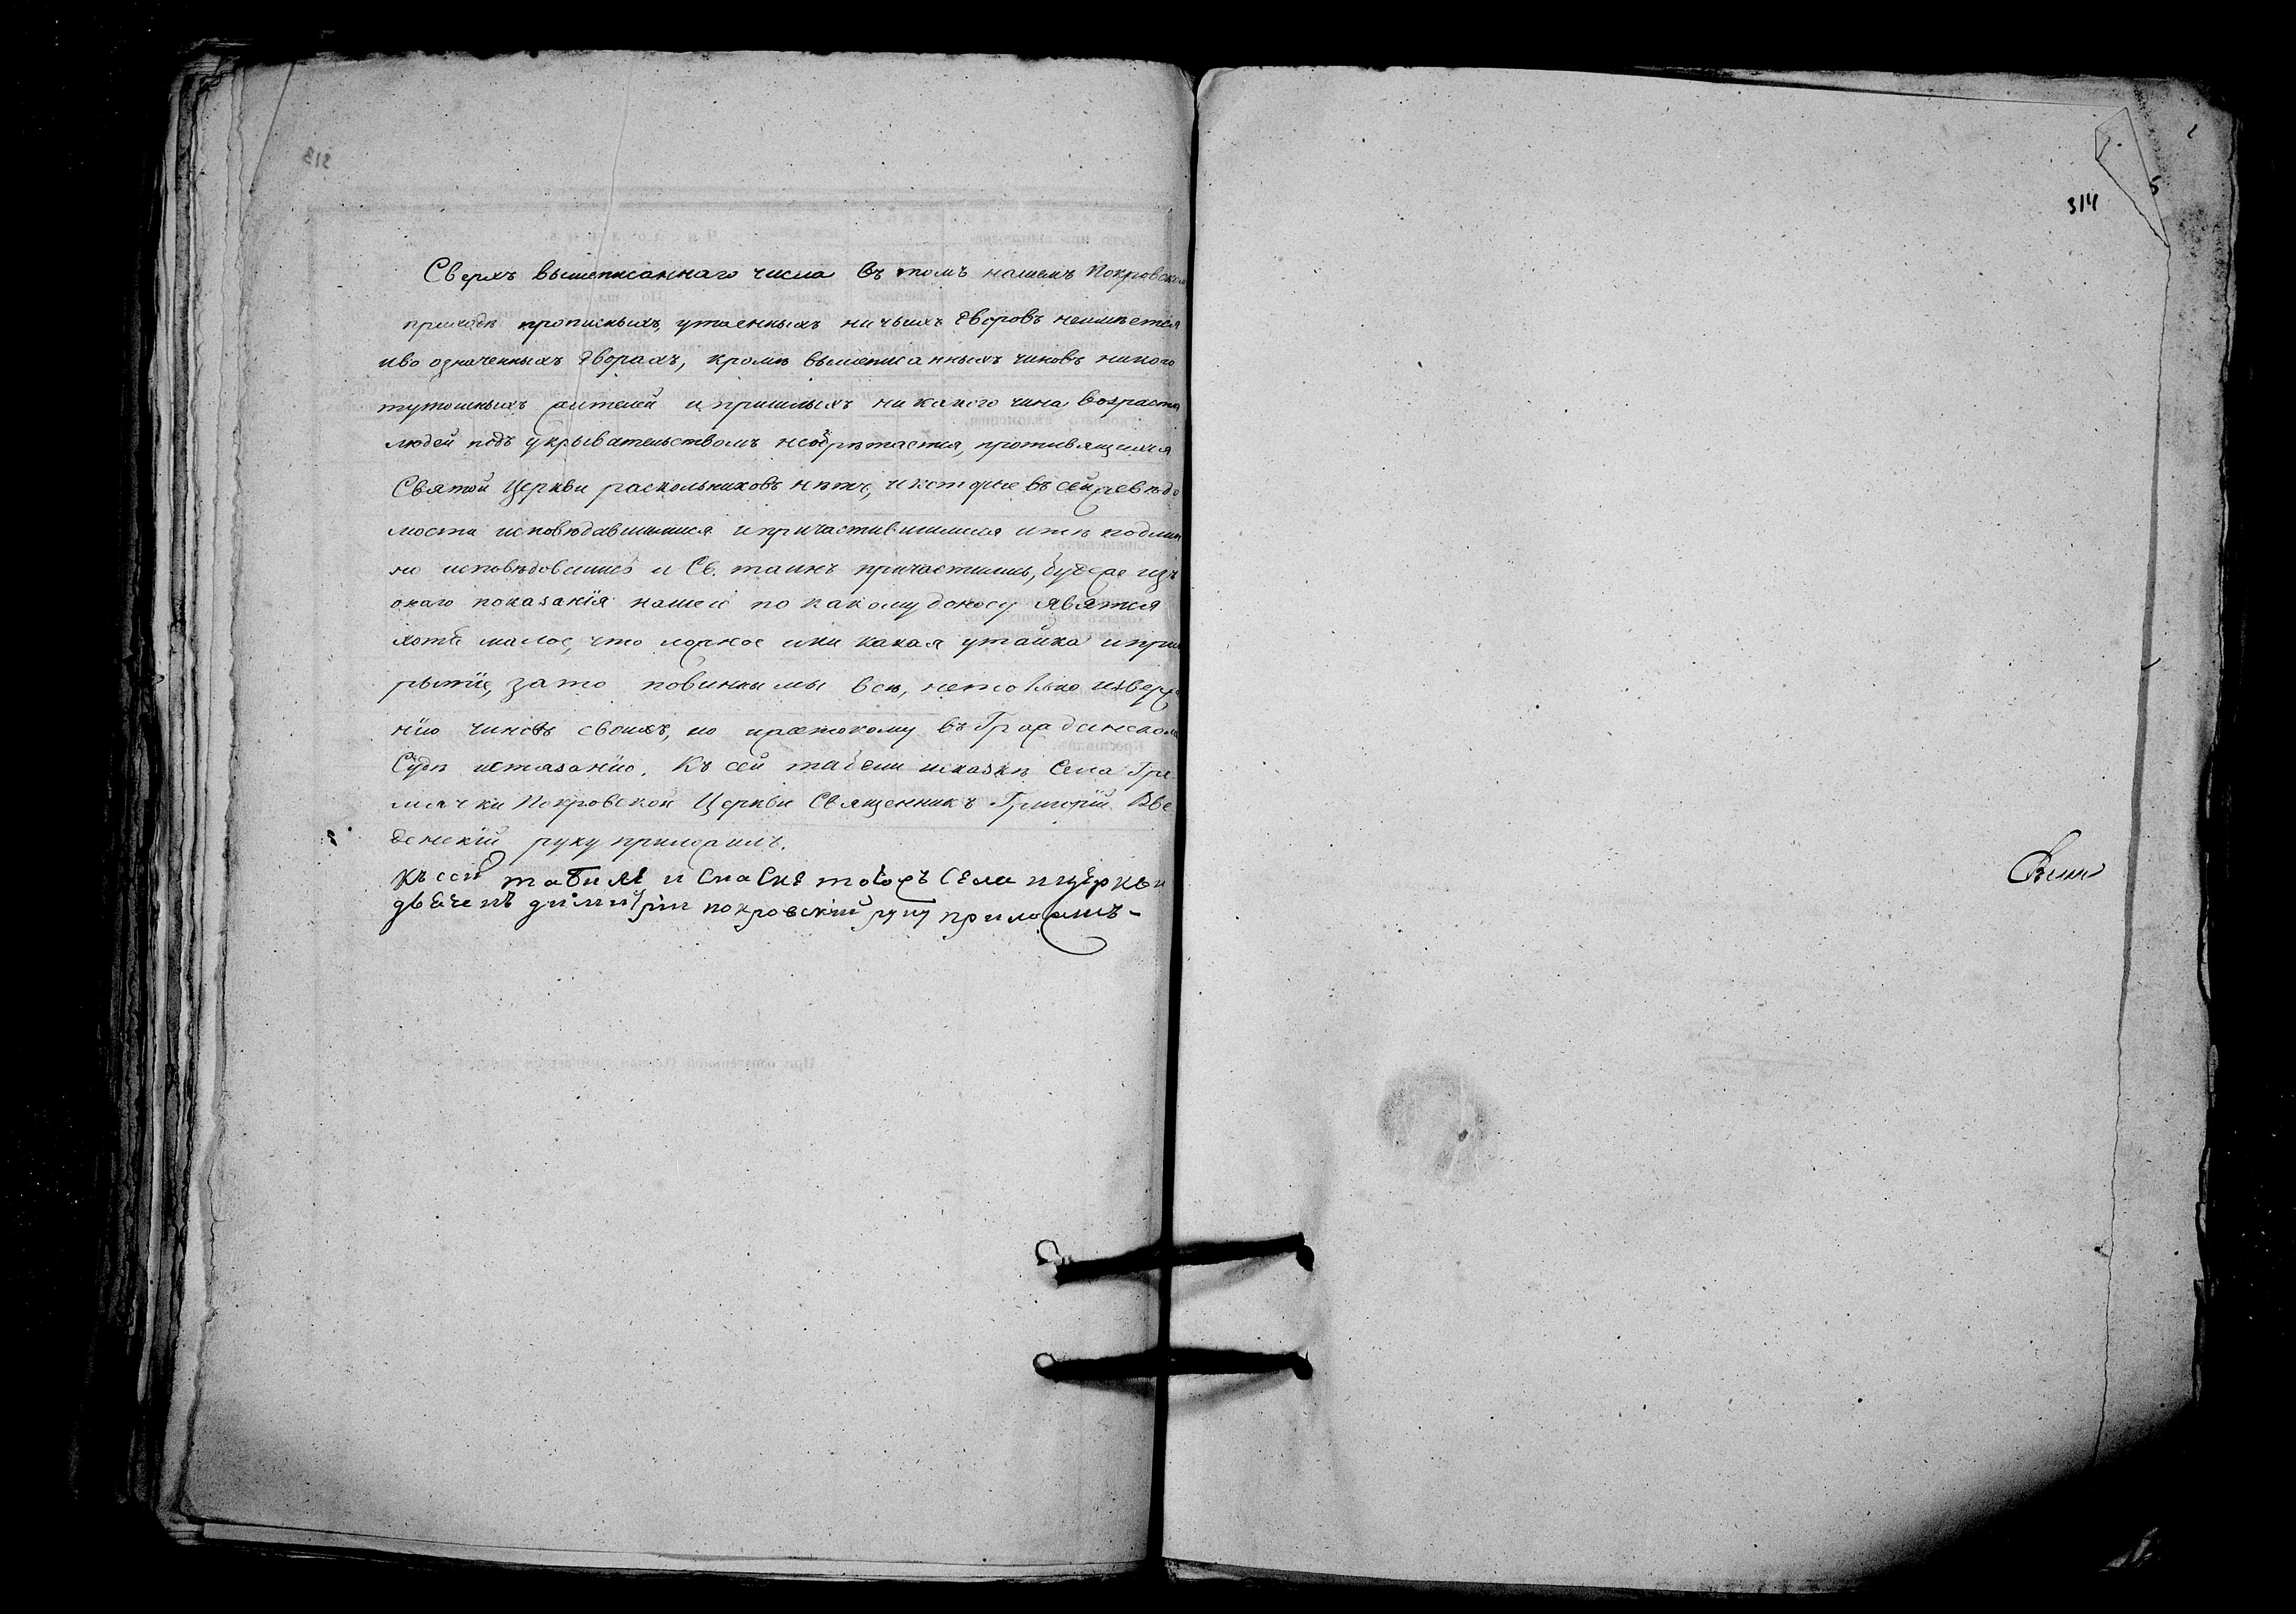 Сверхъ вышеписаннаго числа въ томъ нашемъ Покровском
приходѣ прописныхъ, утаенныхъ ничьихъ дворовъ неимѣется
иво означенныхъ дворахъ, кромѣ вышеписанныхъ чиновъ никого
тутошныхъ жителей и пришлыхъ никакого чина возраста
людей подъ укрывательствомъ необрѣтается, противящихся
Святой Церкви раскольниковъ нѣтъ, и которые въ сей ževѣдо
мости исповѣдавшимися и причастившимися и тѣ подлин
но исповѣдовались и Св. таинъ причастились, буде же изъ
онаго показанія нашего по какому доносу явятся
хотя малое, что ложное или какая утайка и прик
рытіе, за то повинны мы всѣ, нетолько изверже
нію чиновъ своихъ, но и жестокому въ Гражданском
Судѣ истязанію. Къ сей табели и сказкѣ Села Гре
мячки Покровской Церкви Священникъ Григорій Вве
денскій руку приложилъ.
Къ сей табиле и скаске тогожъ села и церкви
дьячекъ димитрии покровскии руку приложилъ-
314